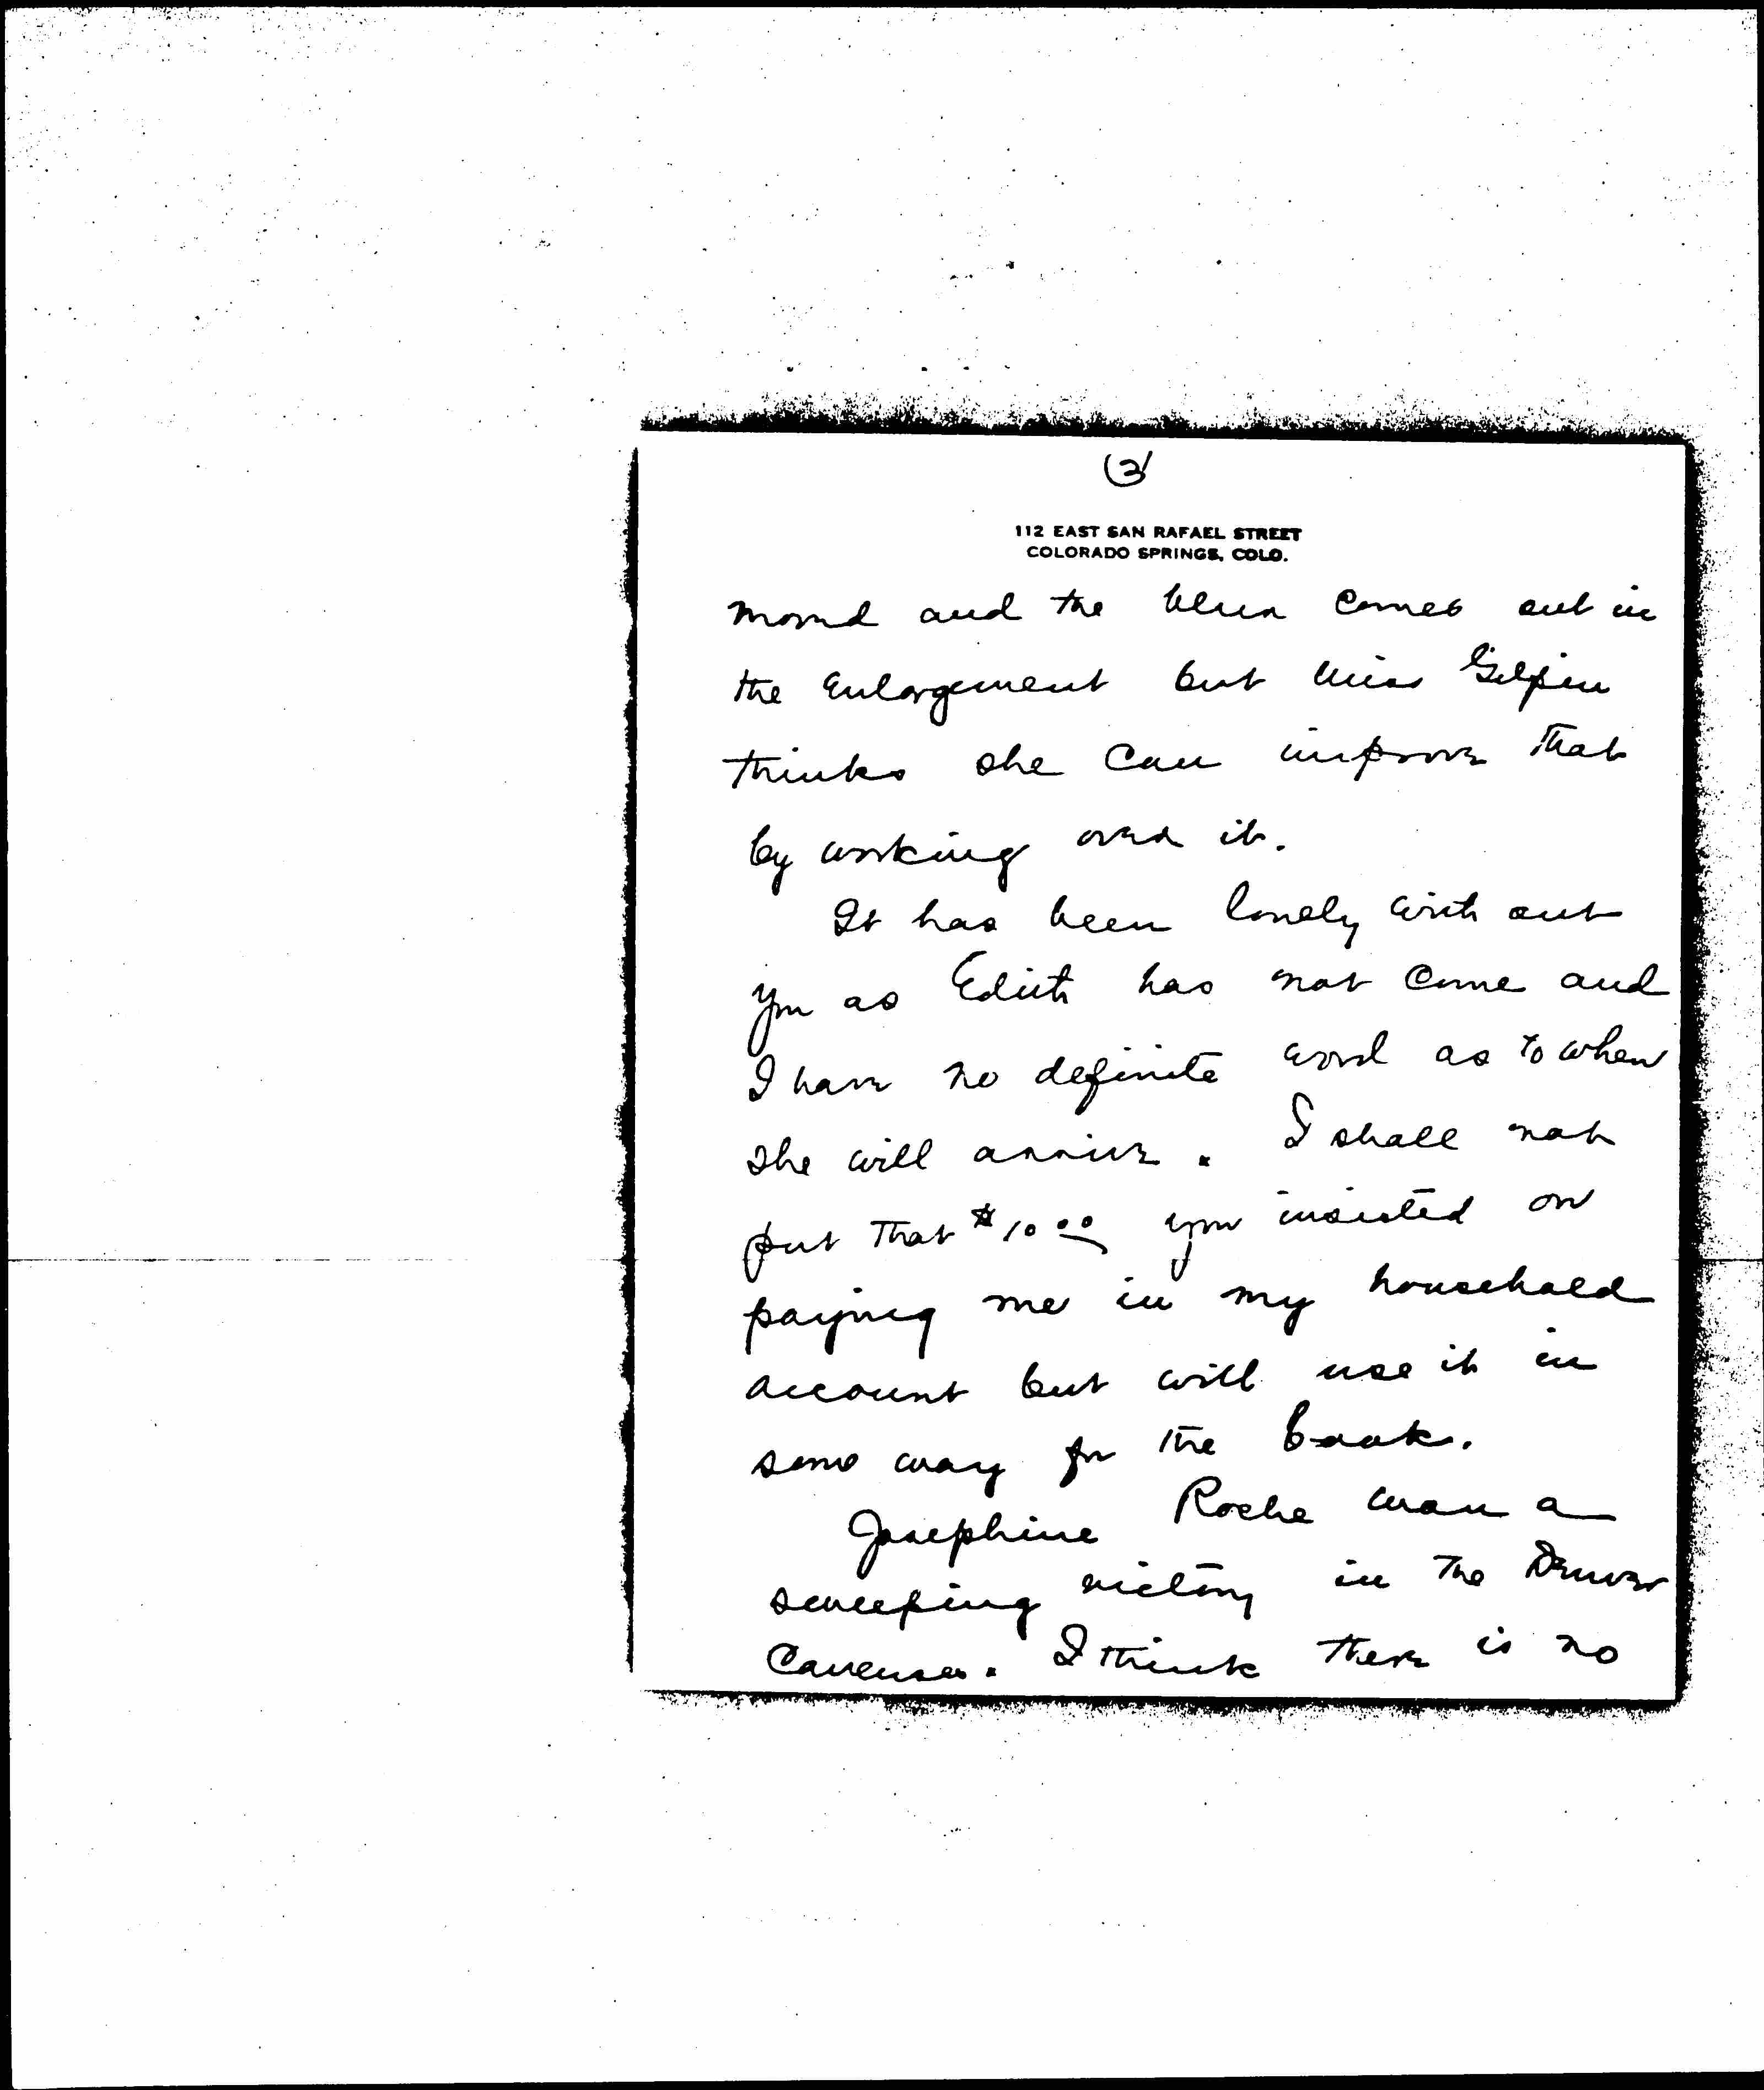 (3)
112 EAST SAN RAFAEL STREET
COLORADO SPRINGS, COLO.
moved and the blur comes out in
the enlargement but Miss Gilpin
thinks she can improve that
by working over it.
It has been lonely with out
you as Edith has not come and
I have no definite word as to when
she will arrive. I shall not
put that $10.00 you insisted on
paying me in my household
account but will use it in
some way for the book.
Josephine Roche won a
sweeping victory in the Denver
Caucuses. I think there is no